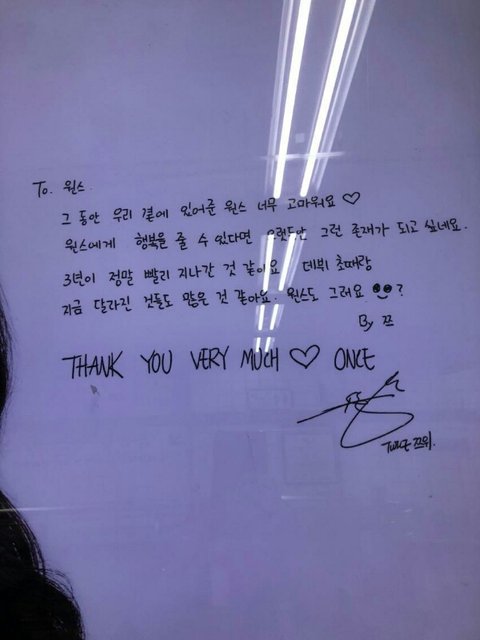 To. 원스
그 동안 우리 곁에 있어준 원스 너무 고마워요 ♡
원스에게 행복을 줄 수 있다면 오랫동안 그런 존재가 되고 싶네요.
3년이 정말 빨리 지나간 것 같아요 데뷔 초때랑
지금 달라진 것들도 많은 것 같아요. 원스도 그러요 ?
By 쯔
THANK YOU VERY MUCH ♡ ONCE
TWICE 쯔위.